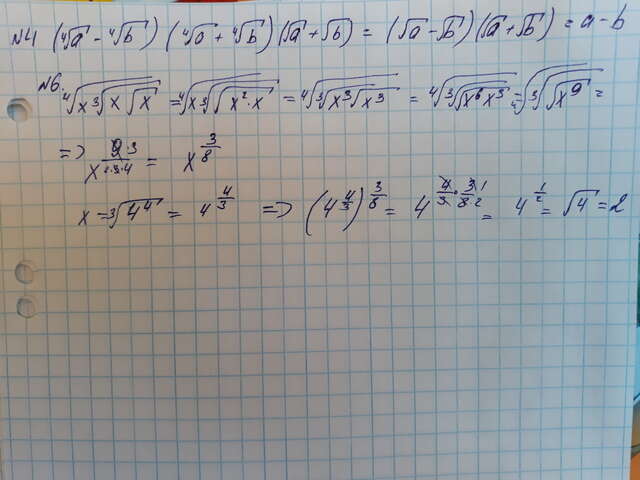 №4 (⁴√a - ⁴√b) (⁴√a + ⁴√b) (√a + √b) = (√a - √b)(√a + √b) = a - b
№6. ⁴√(x ³√(x √x)) = ⁴√(x ³√(√(x² · x))) = ⁴√(³√(x³ √x³)) = ⁴√(³√(√(x⁶ x³))) = ⁴√(³√(√x⁹)) =
=> x^(9·3/2·3·4) = x^(3/8)
x = ³√4⁴ = 4^(4/3) => (4^(4/3))^(3/8) = 4^(4/3 · 3/8) = 4^(1/2) = √4 = 2